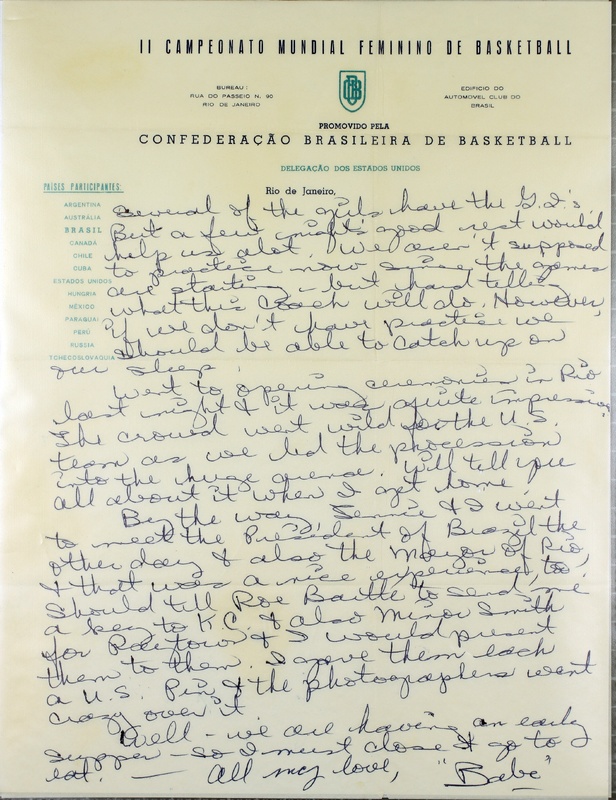 II CAMPEONATO MUNDIAL FEMININO DE BASKETBALL
BUREAU:
RUA DO PASSEIO N. 90
RIO DE JANEIRO
CBB
EDIFICIO DO
AUTOMOVEL CLUB DO
BRASIL
PROMOVIDO PELA
CONFEDERAÇÃO BRASILEIRA DE BASKETBALL
DELEGAÇÃO DOS ESTADOS UNIDOS
PAÍSES PARTICIPANTES:
ARGENTINA
AUSTRÁLIA
BRASIL
CANADÁ
CHILE
CUBA
ESTADOS UNIDOS
HUNGRIA
MÉXICO
PARAGUAI
PERÚ
RUSSIA
TCHECOSLOVAQUIA
Rio de Janeiro,
several of the girls have the G.I's
But a few night's good rest would
help us alot. We aren't supposed
to practice now since the games
are starting - but hard telling
what this coach will do. However,
if we don't have practice we
should be able to catch up on
our sleep!
Went to opening ceremonies in Rio
last night & it was quite impressive
The crowd went wild for the U.S.
team as we led the procession
into the huge arena. Will tell you
all about it when I get home.
By the way, Jennie & I went
to meet the President of Brazil the
other day & also the Mayor of Rio,
& that was a nice experience, too.
Should tell Roe Bartle to send me
a key to K.C. & also Minor Smith
for Raytown & I would present
them to them. I gave them each
a U.S. Pin & the photographers went
crazy over it
Well - we are having an early
supper - so I must close & go to
eat. — All my love, "Babe"